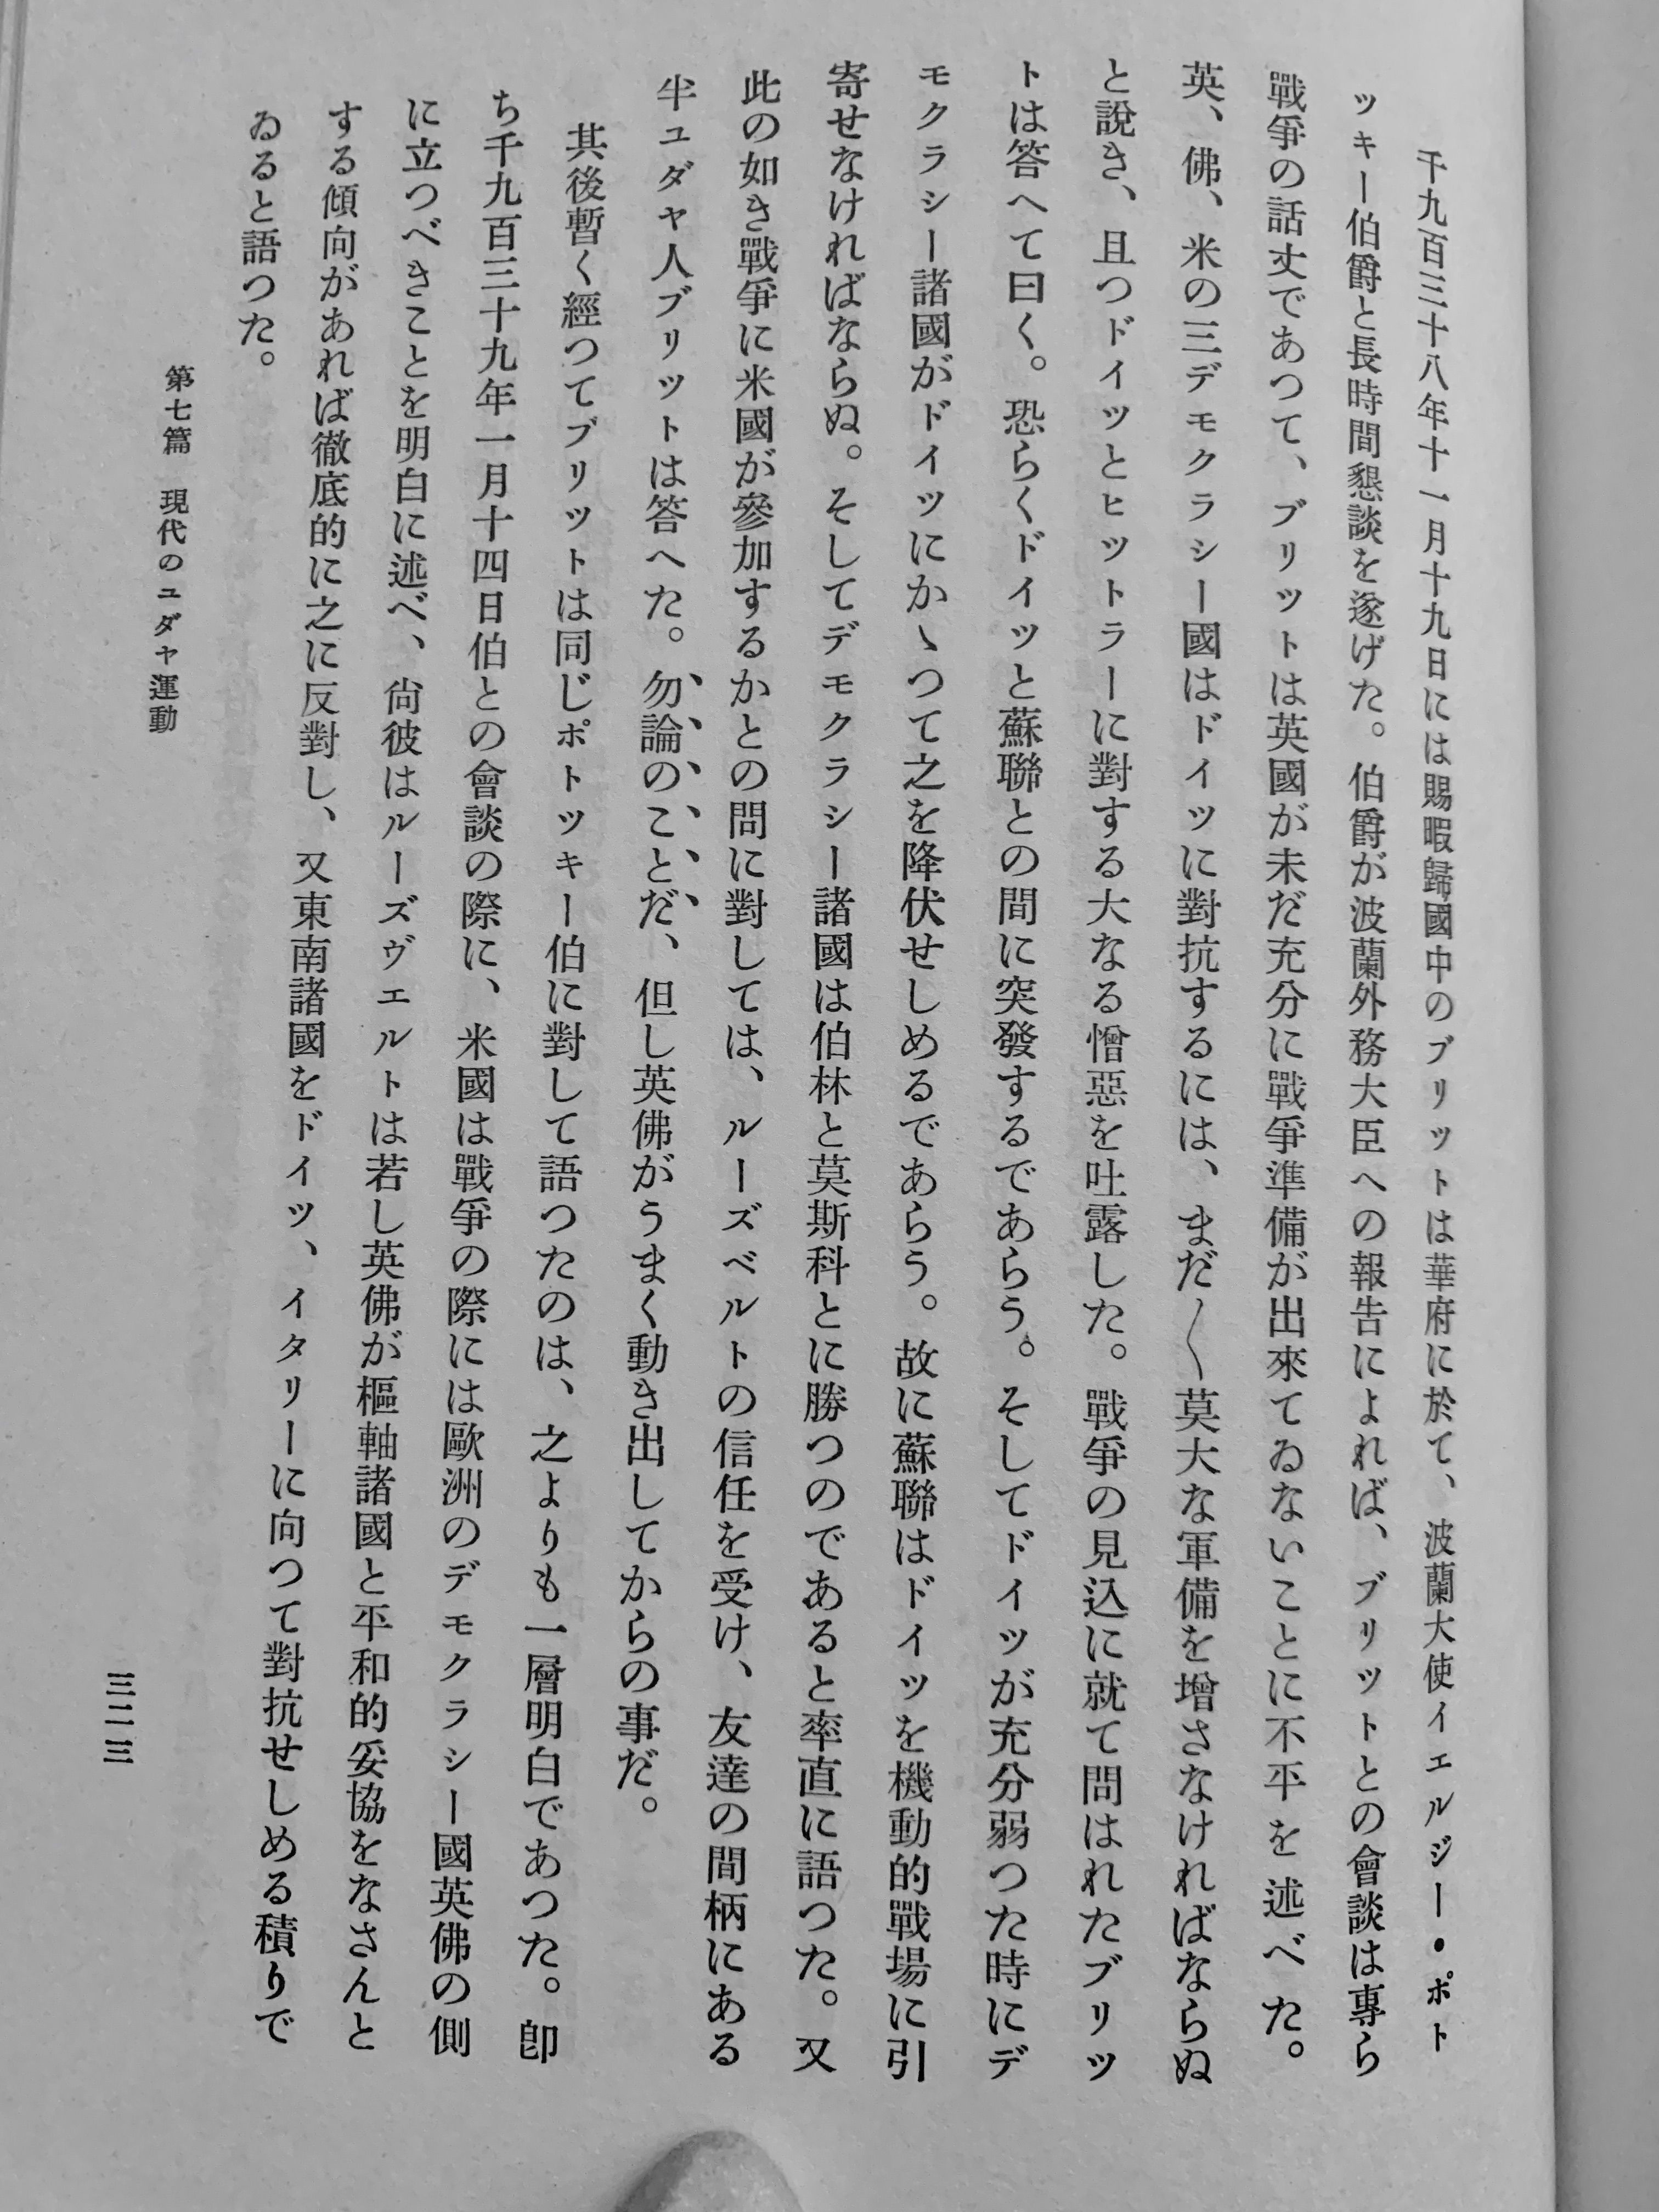 千九百三十八年十一月十九日には賜暇歸國中のブリットは華府に於て、波蘭大使イェルジー・ポト
ツキー伯爵と長時間懇談を遂げた。伯爵が波蘭外務大臣への報告によれば、ブリットとの會談は專ら
戰爭の話丈であつて、ブリットは英國が未だ充分に戰爭準備が出來てゐないことに不平を述べた。
英、佛、米の三デモクラシー國はドイツに對抗するには、まだ〱莫大な軍備を增さなければならぬ
と說き、且つドイツとヒットラーに對する大なる憎惡を吐露した。戰爭の見込に就て問はれたブリッ
トは答へて曰く。恐らくドイツと蘇聯との間に突發するであらう。そしてドイツが充分弱つた時にデ
モクラシー諸國がドイツにかゝつて之を降伏せしめるであらう。故に蘇聯はドイツを機動的戰場に引
寄せなければならぬ。そしてデモクラシー諸國は伯林と莫斯科とに勝つのであると率直に語つた。又
此の如き戰爭に米國が參加するかとの問に對しては、ルーズベルトの信任を受け、友達の間柄にある
半ユダヤ人ブリットは答へた。勿論のことだ、但し英佛がうまく動き出してからの事だ。
其後暫く經つてブリットは同じポトツキー伯に對して語つたのは、之よりも一層明白であつた。卽
ち千九百三十九年一月十四日伯との會談の際に、米國は戰爭の際には歐洲のデモクラシー國英佛の側
に立つべきことを明白に述べ、尙彼はルーズヴェルトは若し英佛が樞軸諸國と平和的妥協をなさんと
する傾向があれば徹底的に之に反對し、又東南諸國をドイツ、イタリーに向つて對抗せしめる積りで
ゐると語つた。
第七篇 現代のユダヤ運動
三二三